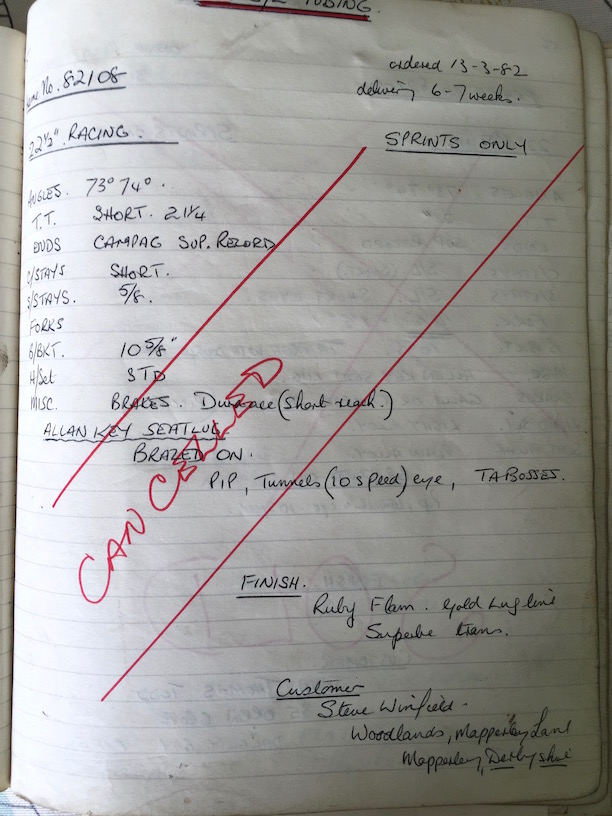 TUBING.
No. 82108
ordered 13-3-82
delivery 6-7 weeks.
22½" RACING.
SPRINTS ONLY
ANGLES. 73° 74°.
T.T. SHORT. 21¼
ENDS CAMPAG SUP. RECORD
C/STAYS SHORT.
S/STAYS. 5/8.
FORKS
B/BKT. 10 5/8"
H/Set STD
MISC. BRAKES. Durance (Short reach.)
ALLAN KEY SEATLUG
BRAZED ON.
PIP, Tunnels (10 speed) eye, TA BOSSES.
CANCELLED
FINISH.
Ruby Flam. Gold Lug line
Superbe trans.
Customer
Steve Winfield.
Woodlands, Mapperley Lane
Mapperley, Derbyshire